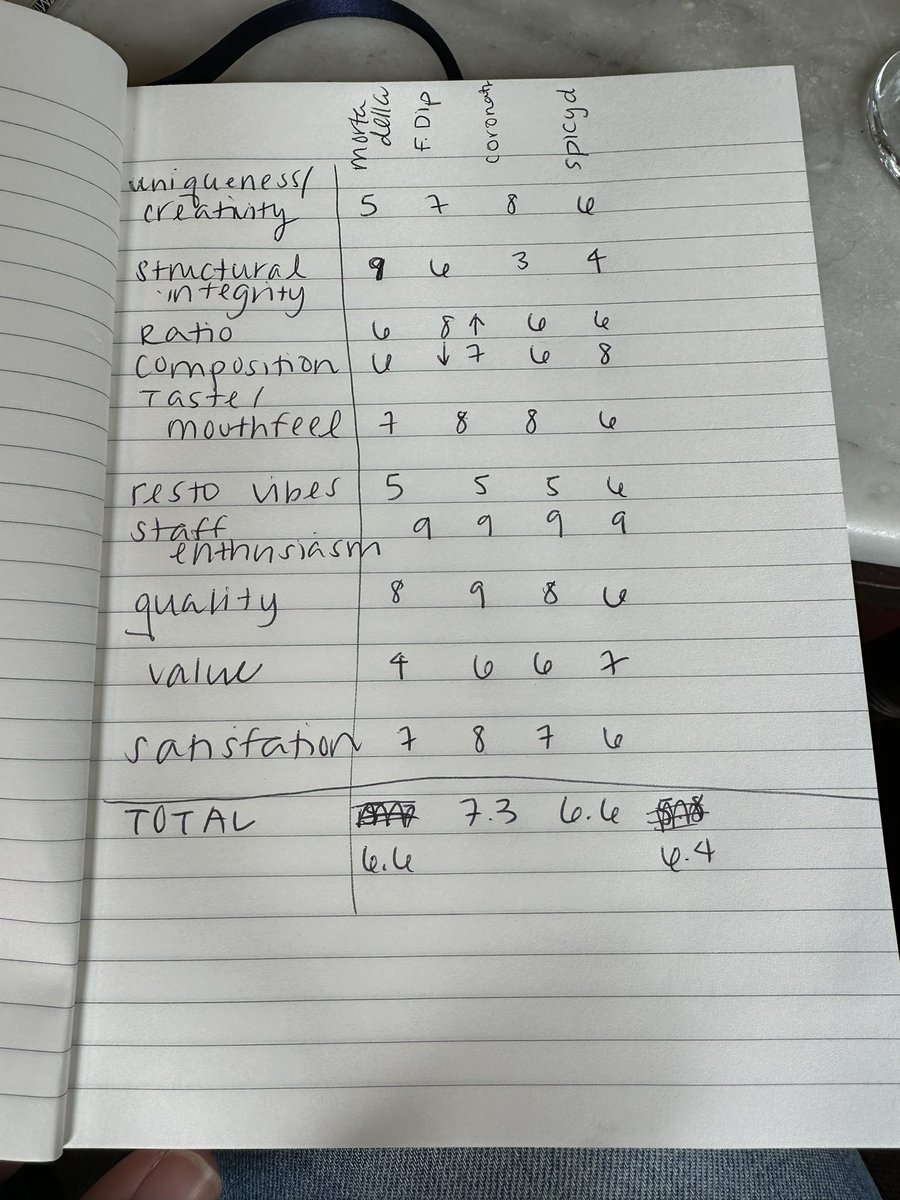 morta della F. Dip coronatn spicy d
uniqueness/
creativity 5 7 8 6
structural 9 6 3 4
integrity
Ratio 6 8 ↑ 6 6
composition 6 ↓ 7 6 8
Taste/
mouthfeel 7 8 8 6
resto vibes 5 5 5 6
staff 9 9 9 9
enthusiasm
quality 8 9 8 6
value 4 6 6 7
sanisfation 7 8 7 6
TOTAL 7.3 6.6
6.6 6.4